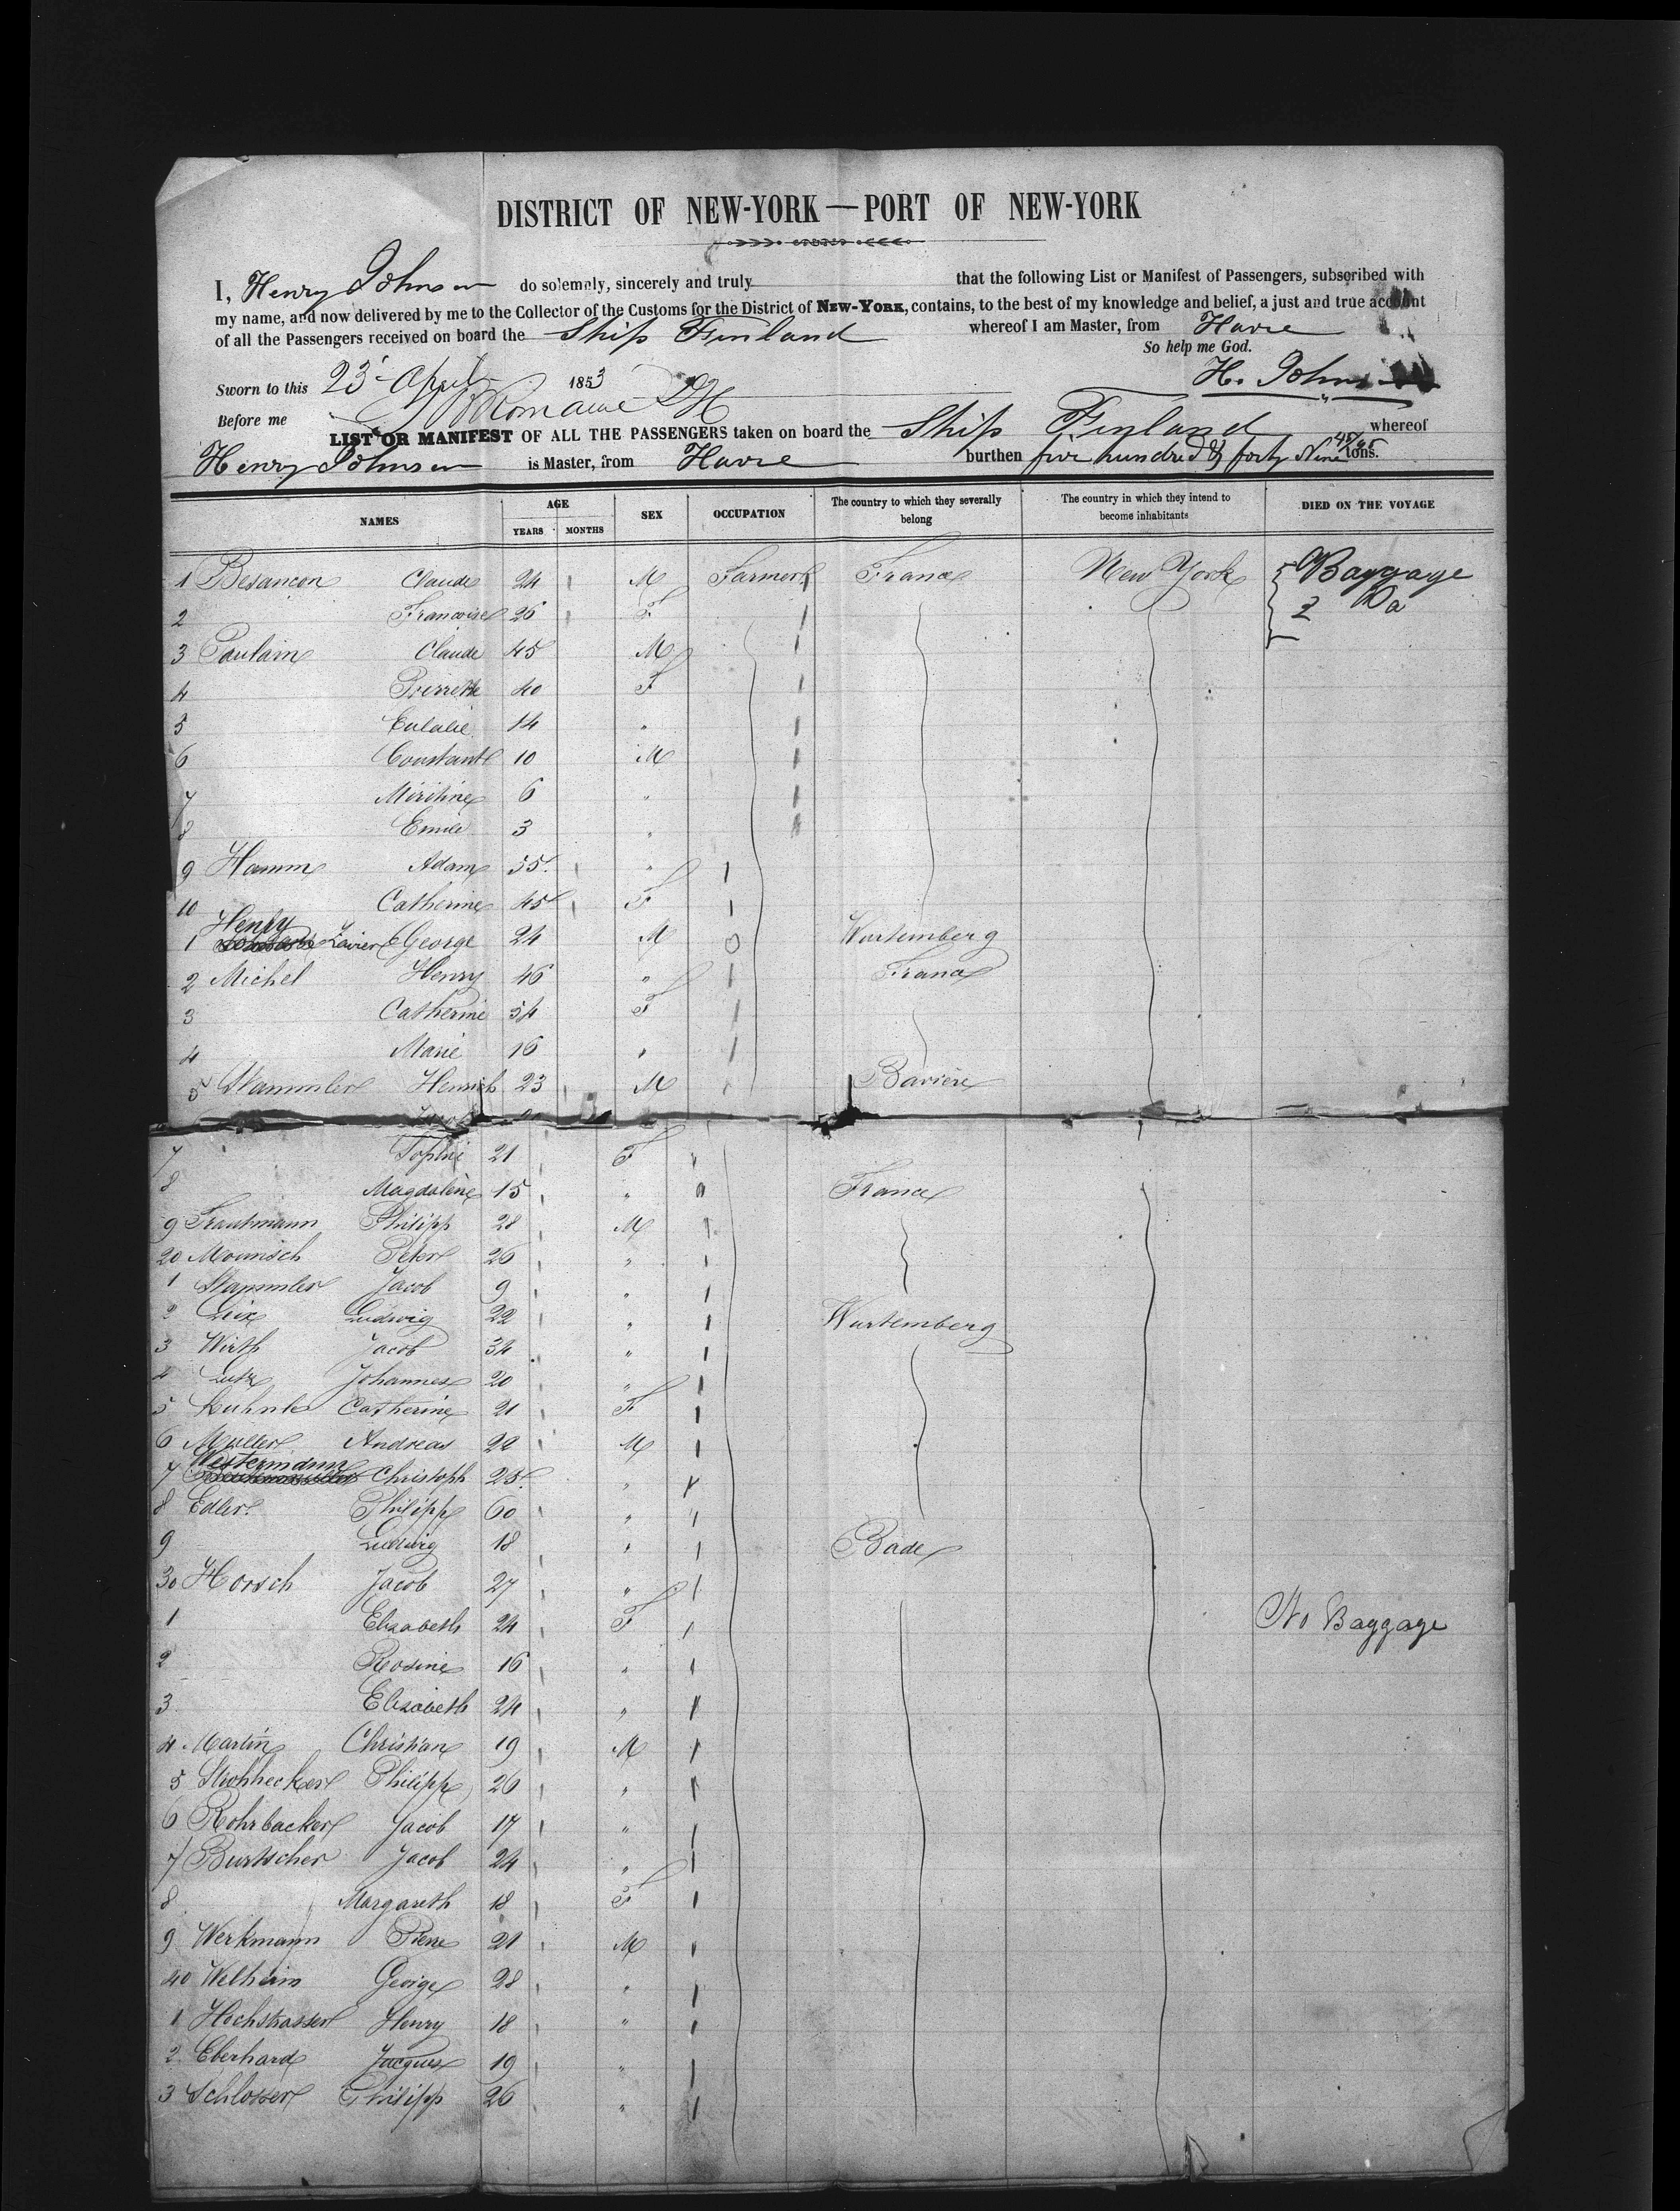 DISTRICT OF NEW-YORK—PORT OF NEW-YORK
I, Henry Johnson do solemnly, sincerely and truly that the following List or Manifest of Passengers, subscribed with
my name, and now delivered by me to the Collector of the Customs for the District of NEW-YORK, contains, to the best of my knowledge and belief, a just and true account
of all the Passengers received on board the Ship Finland whereof I am Master, from Havre
So help me God.
Sworn to this 23 April 1853 H. Johnson
Before me Romaine
LIST OR MANIFEST OF ALL THE PASSENGERS taken on board the Ship Finland whereof
Henry Johnson is Master, from Havre burthen five hundred & forty Nine 45/95 tons.
NAMES AGE YEARS MONTHS SEX OCCUPATION The country to which they severally belong The country in which they intend to become inhabitants DIED ON THE VOYAGE
1 Besancon Claude 24 M Farmer France New York Baggage
2 Francoise 26 F 2 Da
3 Paulain Claude 45 M
4 Pierrette 40 F
5 Eulalie 14 "
6 Constant 10 M
7 6 "
8 Emile 3 "
9 Hamm Adam 55 "
10 Catherine 45 F
1 Henry Xavier George 24 M Wurtemberg
2 Michel Henry 46 " France
3 Catherine 54 F
4 Marie 16 "
5 Stammler Henrich 23 M Baviere
Jacob
7 Sophie 21 F
8 Magdalene 15 " France
9 Trautmann Philipp 28 M
20 Mounisch Peter 26 "
1 Stammler Jacob 9 "
2 Leix Ludwig 22 " Wurtemberg
3 Wirth Jacob 34 "
4 Lutz Johannes 20 "
5 Kuhnle Catherine 21 F
6 Muller Andreas 22 M
7 Westermann Christoph 25 "
8 Edler Philipp 60 "
9 Ludwig 18 " Bade
30 Horsch Jacob 27 "
1 Elisabeth 24 F No Baggage
2 Rosine 16 "
3 Elisabeth 24 "
4 Martin Christian 19 M
5 Strohhecker Philipp 26 "
6 Rohrbacker Jacob 17 "
7 Burtscher Jacob 24 "
8 Margareth 18 F
9 Werkmann Pierre 21 M
40 Welheim George 28 "
1 Hochstrasser Henry 18 "
2 Eberhard Jacques 19 "
3 Schlosser Philipp 26 "